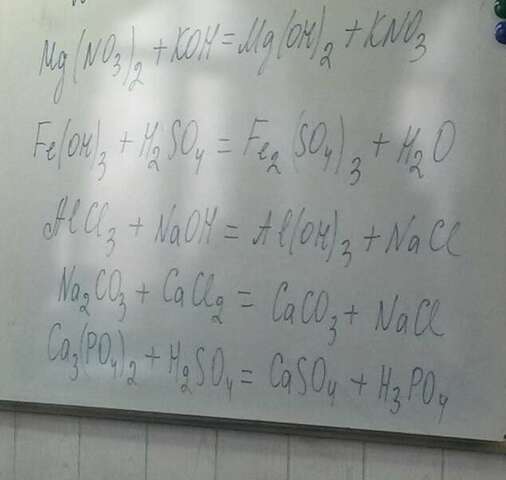 Mg(NO₃)₂ + KOH = Mg(OH)₂ + KNO₃
Fe(OH)₃ + H₂SO₄ = Fe₂(SO₄)₃ + H₂O
AlCl₃ + NaOH = Al(OH)₃ + NaCl
Na₂CO₃ + CaCl₂ = CaCO₃ + NaCl
Ca₃(PO₄)₂ + H₂SO₄ = CaSO₄ + H₃PO₄